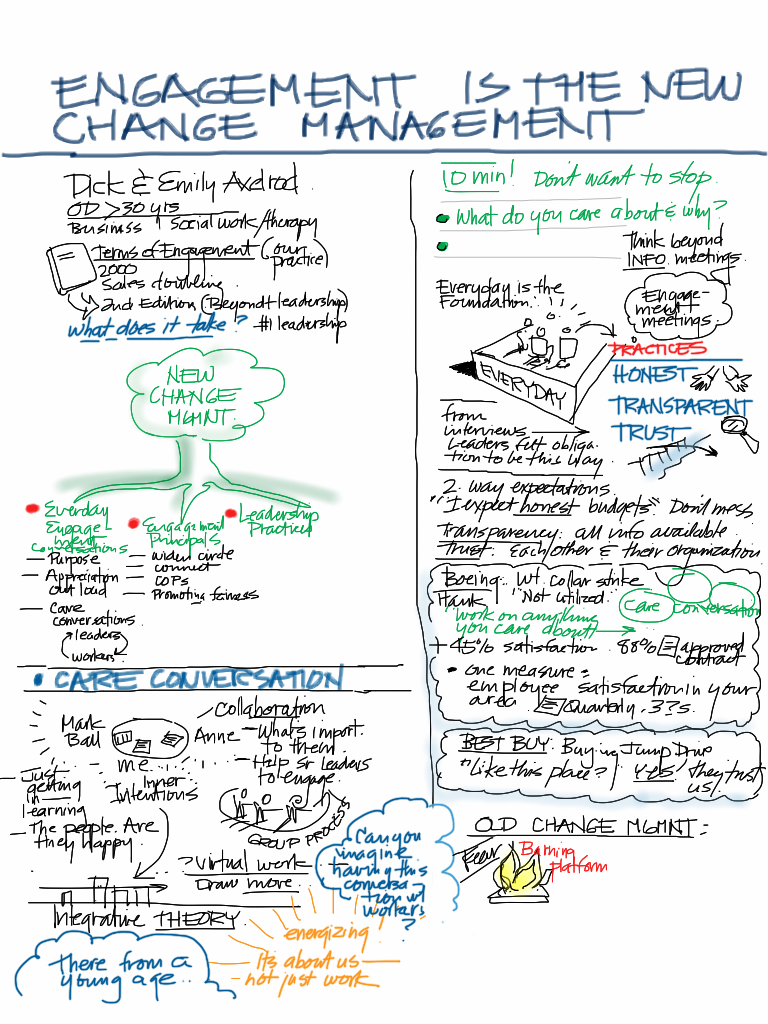 ENGAGEMENT IS THE NEW
CHANGE MANAGEMENT
Dick & Emily Axelrod
OD > 30 yrs
Business Social work/therapy
Terms of Engagement (our
practice)
2000
Sales doubling
2nd Edition (Beyond + leadership)
What does it take? #1 leadership
NEW
CHANGE
MGMNT.
Everday
Engage
ment
Conversations
— Purpose
— Appreciation
out loud
— Care
conversations
leaders
workers
Engagement
Principals
— widen circle
— connect
— COPs
— Promoting fairness
Leadership
Practices
• CARE CONVERSATION
Mark
Ball
Anne
me
Collaboration
— What's import
to them
— Help Sr leaders
to engage
— Just
getting
in
learning
— The people. Are
they happy
Inner
Intentions
GROUP PROCESS
? Virtual work
Draw more
Integrative THEORY
Can you
imagine
having this
conversa
tion w/
workers
?
energizing
Its about us
not just work
There from a
young age..
10 min! Don't want to stop.
• What do you care about & why?
•
Think beyond
INFO meetings
Everyday is the
Foundation.
Engage-
ment +
meetings
EVERYDAY
PRACTICES
HONEST
TRANSPARENT
TRUST
from
interviews
Leaders felt obliga
tion to be this way
2. way expectations
"I expect honest budgets" Don't mess
Transparency: all info available
Trust: Each other & their organization
Boeing: Wt. Collar strike
Hank "Not utilized"
Care conversation
"work on anything
you care about"
+ 45% satisfaction 88% approved
contract
• One measure =
employee satisfaction in your
area Quarterly. 3?s.
BEST BUY: Buying Jump Drive
"Like this place?" YES they trust
us!
OLD CHANGE MGMNT:
Fear
Burning
platform